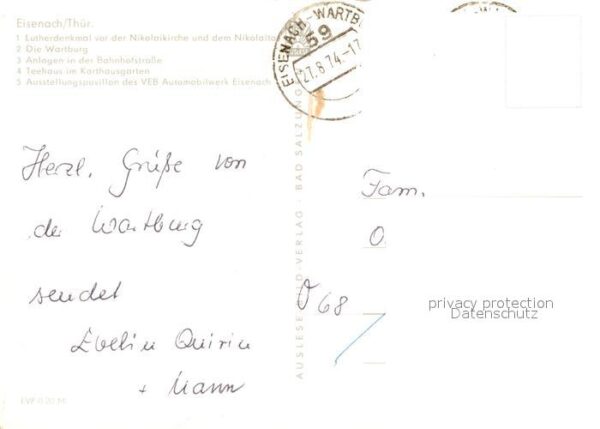 Eisenach/Thür.
1 Lutherdenkmal vor der Nikolaikirche und dem Nikolaito
2 Die Wartburg
3 Anlagen in der Bahnhofstraße
4 Teehaus im Karthausgarten
5 Ausstellungspavillon des VEB Automobilwerk Eisenach
EISENACH-WARTB
59
27.8.74.-17
Herzl. Grüße von
der Wartburg
sendet
Evelin Quirin
+ Mann
EVP 0,20 M
AUSLESE VERLAG · BAD SALZUNG
Fam.
O.
68
privacy protection
Datenschutz